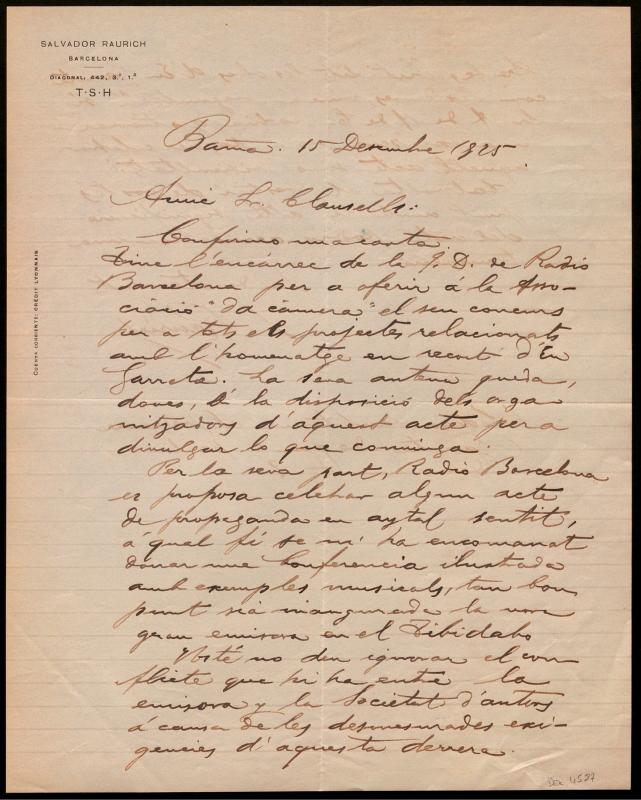 SALVADOR RAURICH
BARCELONA
DIAGONAL, 442, 3.º, 1.ª
T·S·H
Barna. 15 Desembre 1925.
Amic Sr. Clausells:
Confirmo ma carta.
Tinc l'encárrec de la J. D. de Radio
Barcelona per a oferir á la Asso-
ciació "da cámera" el seu concurs
per a tots els projectes relacionats
amb l'homenatge en recort d'En
Garreta. La seva antena queda,
doncs, á la disposició dels orga
nitzadors d'aquest acte per a
divulgar lo que convinga.
Per la seva part, Radio Barcelona
es proposa celebrar algun acte
de propaganda en aytal sentit,
á qual fí se m' ha encomanat
donar una Conferencia ilustrada
amb exemples musicals, tan bon
punt siá inaugurada la nova
gran emisora en el Tibidabo
Vosté no deu ignorar el con
flicte que hi ha entre la
emisora y la Societat d'autors
á causa de les desmesurades exi-
gencies d'aquesta derrera.
CUENTA CORRIENTE: CRÉDIT LYONNAIS
4527